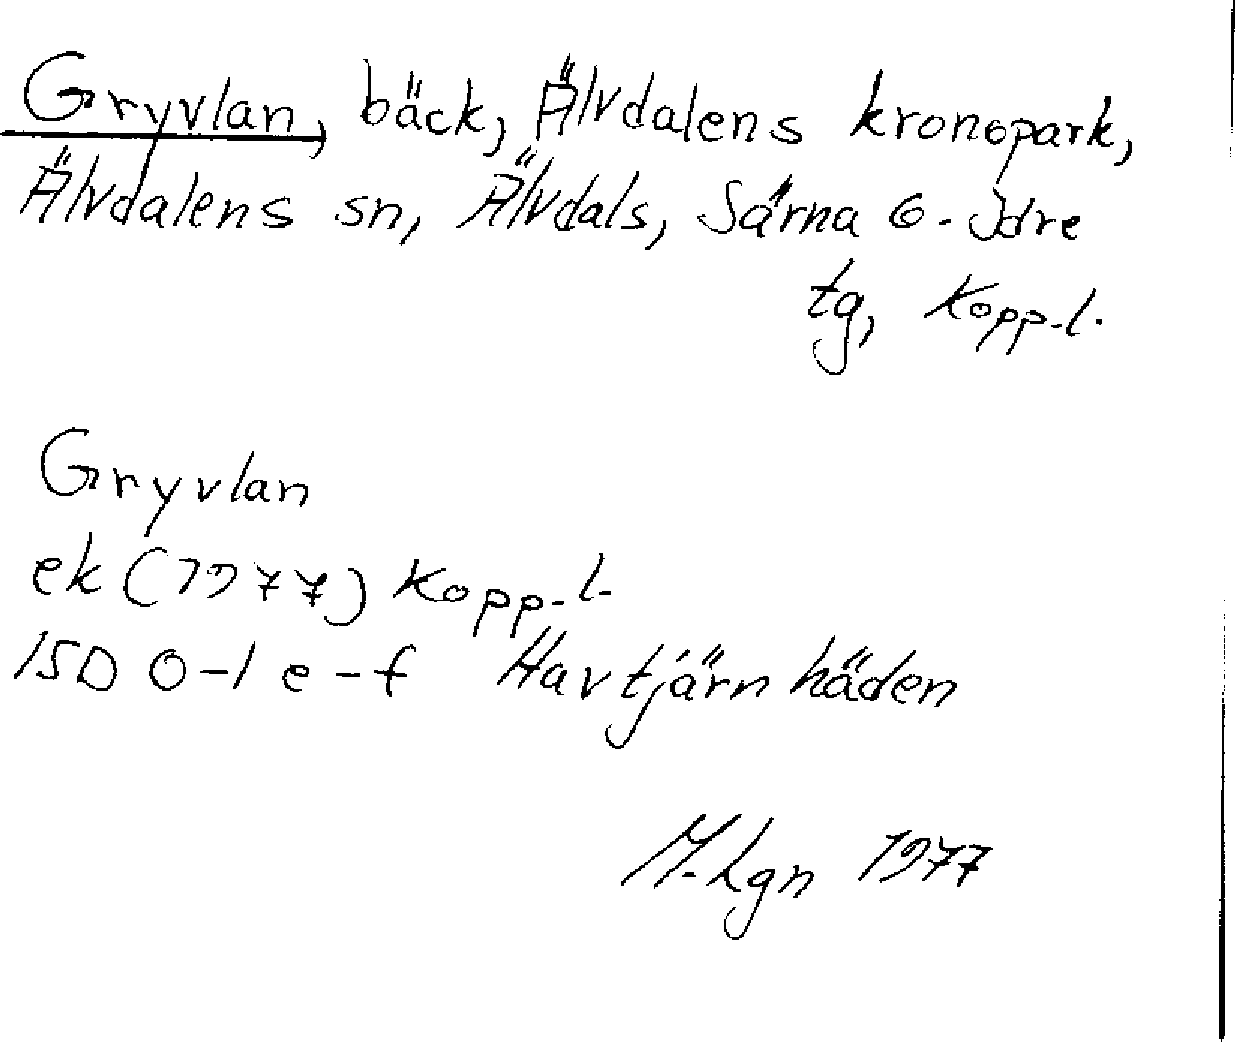 Gryvlan, bäck, Älvdalens kronopark,
Älvdalens sn, Älvdals, Särna o. Idre
tg, Kopp.l.
Gryvlan
ek (1977) Kopp.l.
15D 0-1 e-f Havtjärnhäden
M.Lgn 1977